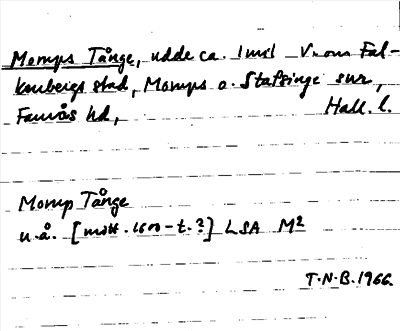 Morups Tånge, udde ca. 1 mil V. om Fal-
kenbergs stad, Morups o. Stafsinge snr,
Faurås hd, Hall. l.
Morup Tånge
u.å. [mitt. 1600-t.?] LSA M2
T.N.B. 1966.